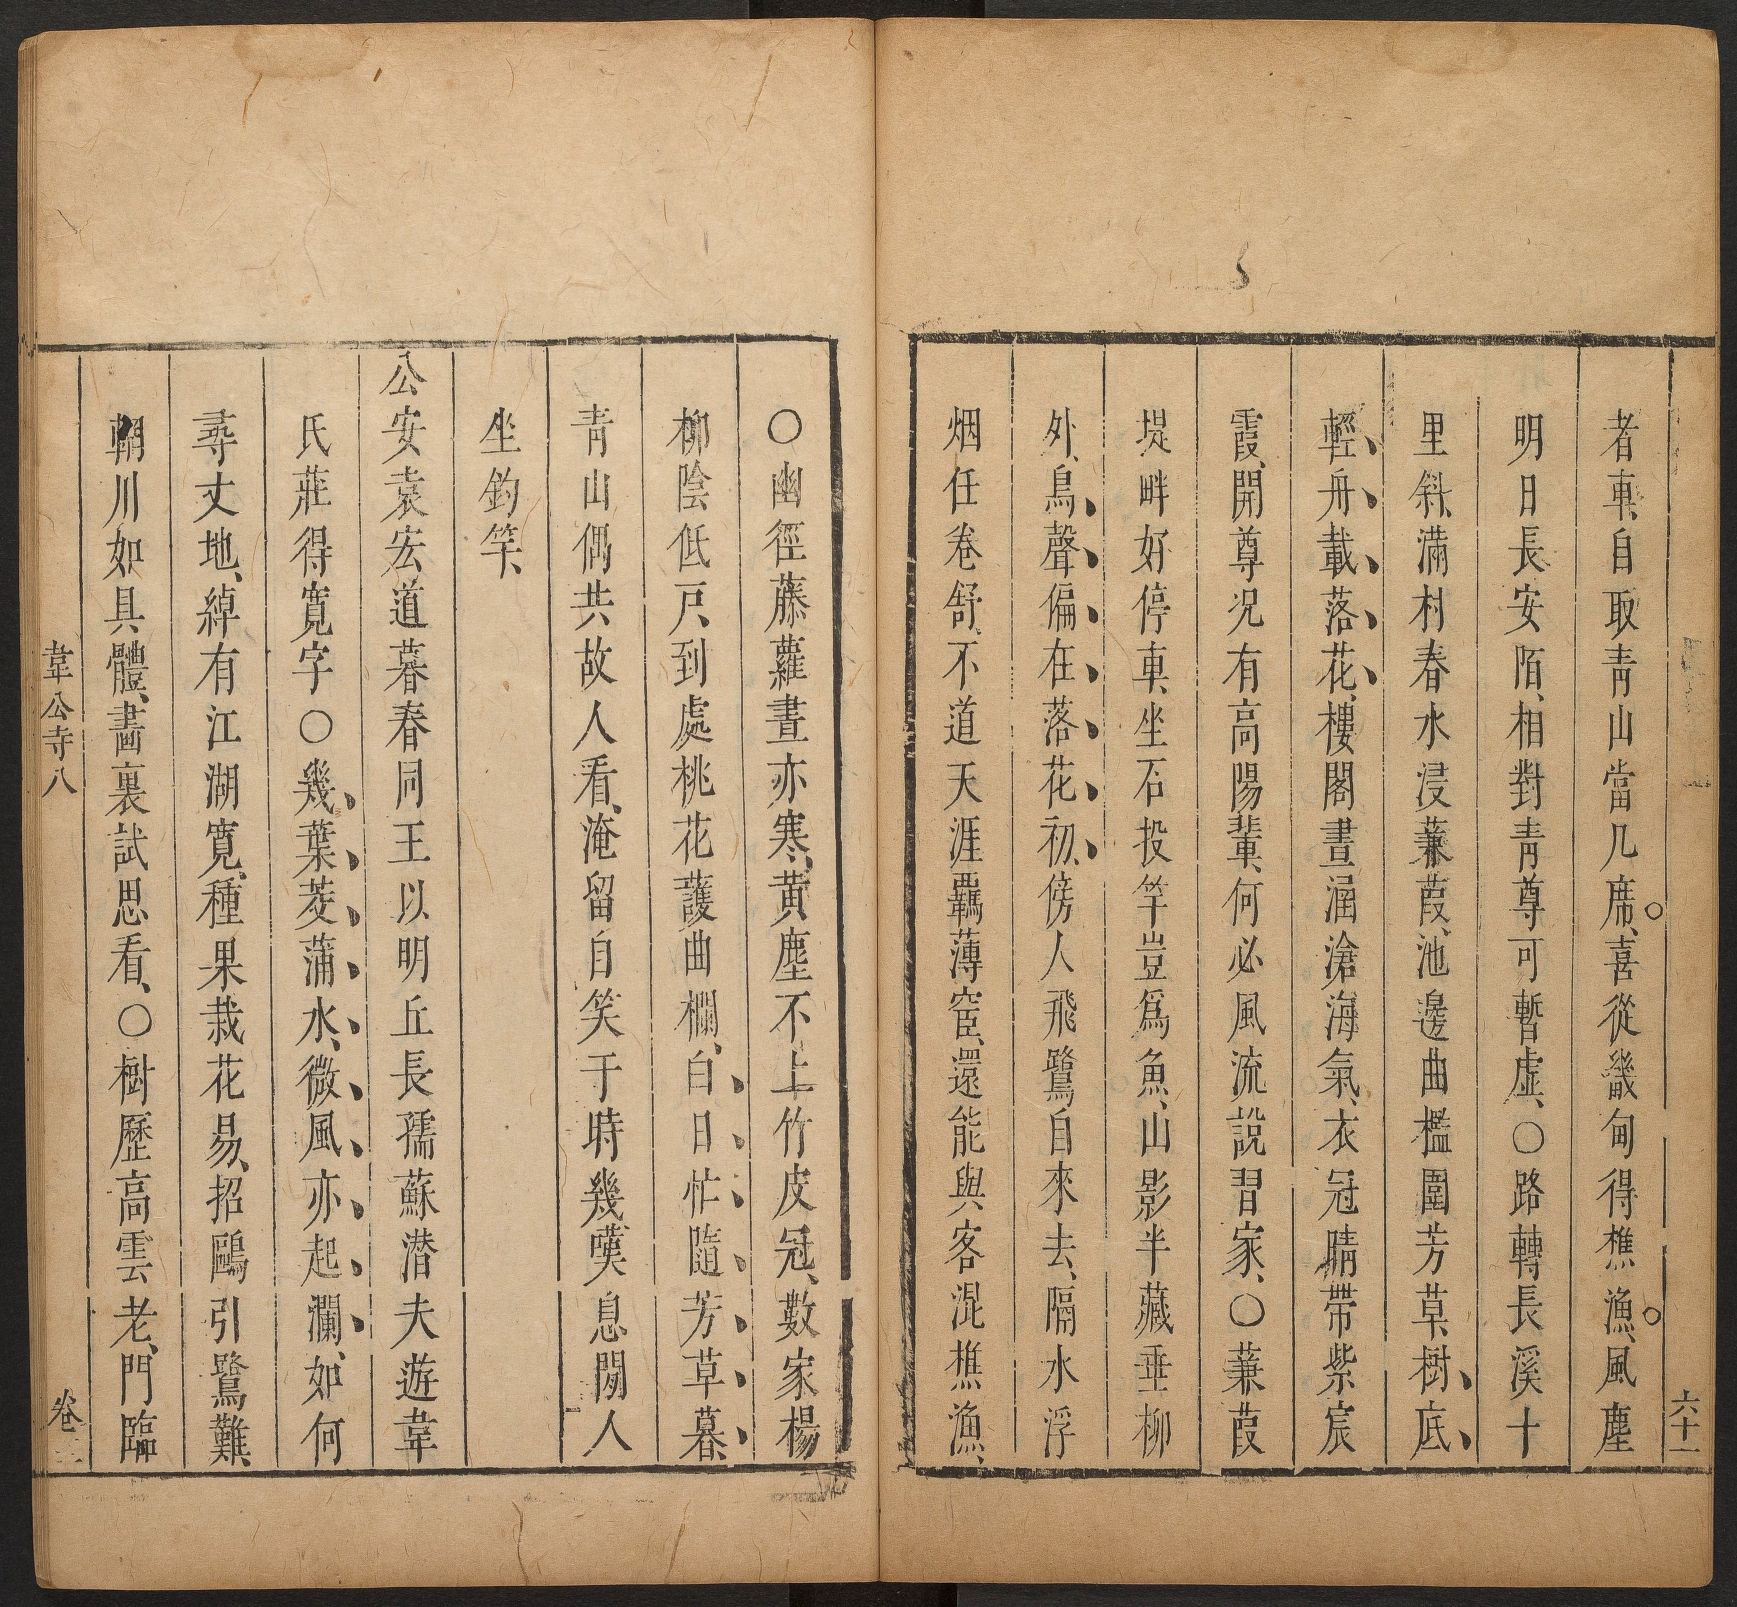 六十一
者車、自取青山當几席、喜從畿甸得樵漁、風塵
明日長安陌、相對青尊可暫虛、○路轉長溪十
里斜、滿村春水浸蒹葭、池邊曲檻圍芳草、樹底
輕舟載落花、樓閣晝涵滄海氣、衣冠晴帶紫宸
霞、開尊况有高陽輩、何必風流說習家、○蒹葭
堤畔好停車、坐石投竿豈爲魚、山影半藏垂柳
外、鳥聲偏在落花初、傍人飛鷺自來去、隔水浮
烟任卷舒、不道天涯羈薄宦、還能與客混樵漁、
○幽徑藤蘿晝亦寒、黄塵不上竹皮冠、數家楊
柳陰低戶、到處桃花護曲欄、白日忙隨芳草暮、
青山偶共故人看、淹留自笑于時幾、嘆息閒人
坐釣竿、
公安袁宏道暮春同王以明丘長孺蘇潜夫遊韋
氏莊得寬字○幾葉菱蒲水、微風亦起瀾、如何
尋丈地、綽有江湖寬、種果栽花易、招鷗引鷺難、
輞川如具體、畵裏試思看、○樹歷高雲老、門臨
韋公寺八
卷三